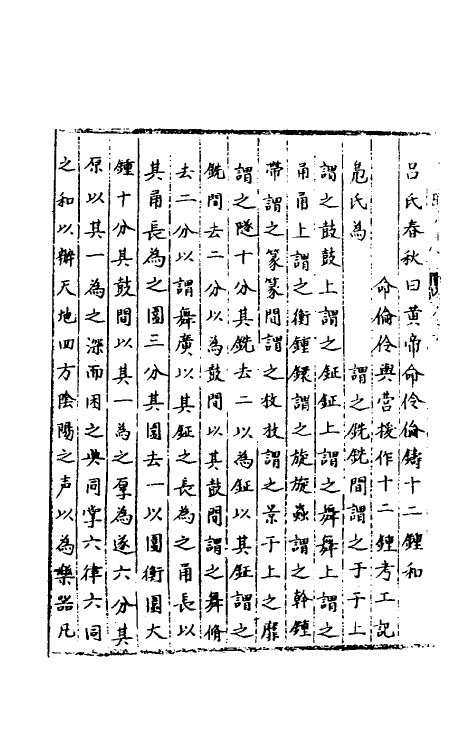 呂氏春秋曰黃帝命伶倫鑄十二鍾和
命倫伶與營援作十二鍾考工記
鳧氏為 謂之銑銑間謂之于于上
謂之鼓鼓上謂之鉦鉦上謂之舞舞上謂之
甬甬上謂之衡鍾鐶謂之旋旋蟲謂之幹鍾
帶謂之篆篆間謂之枚枚謂之景于上之靡
謂之隧十分其銑去二以為鉦以其鉦謂之
銑間去二分以為鼓間以其鼓間謂之舞脩
去二分以謂舞廣以其鉦之長為之甬長以
其甬長為之圍三分其圍去一以圍衡圍大
鍾十分其鼓間以其一為之厚為遂六分其
厚以其一為之深而困之典同掌六律六同
之和以辨天地四方陰陽之声以為樂器凡